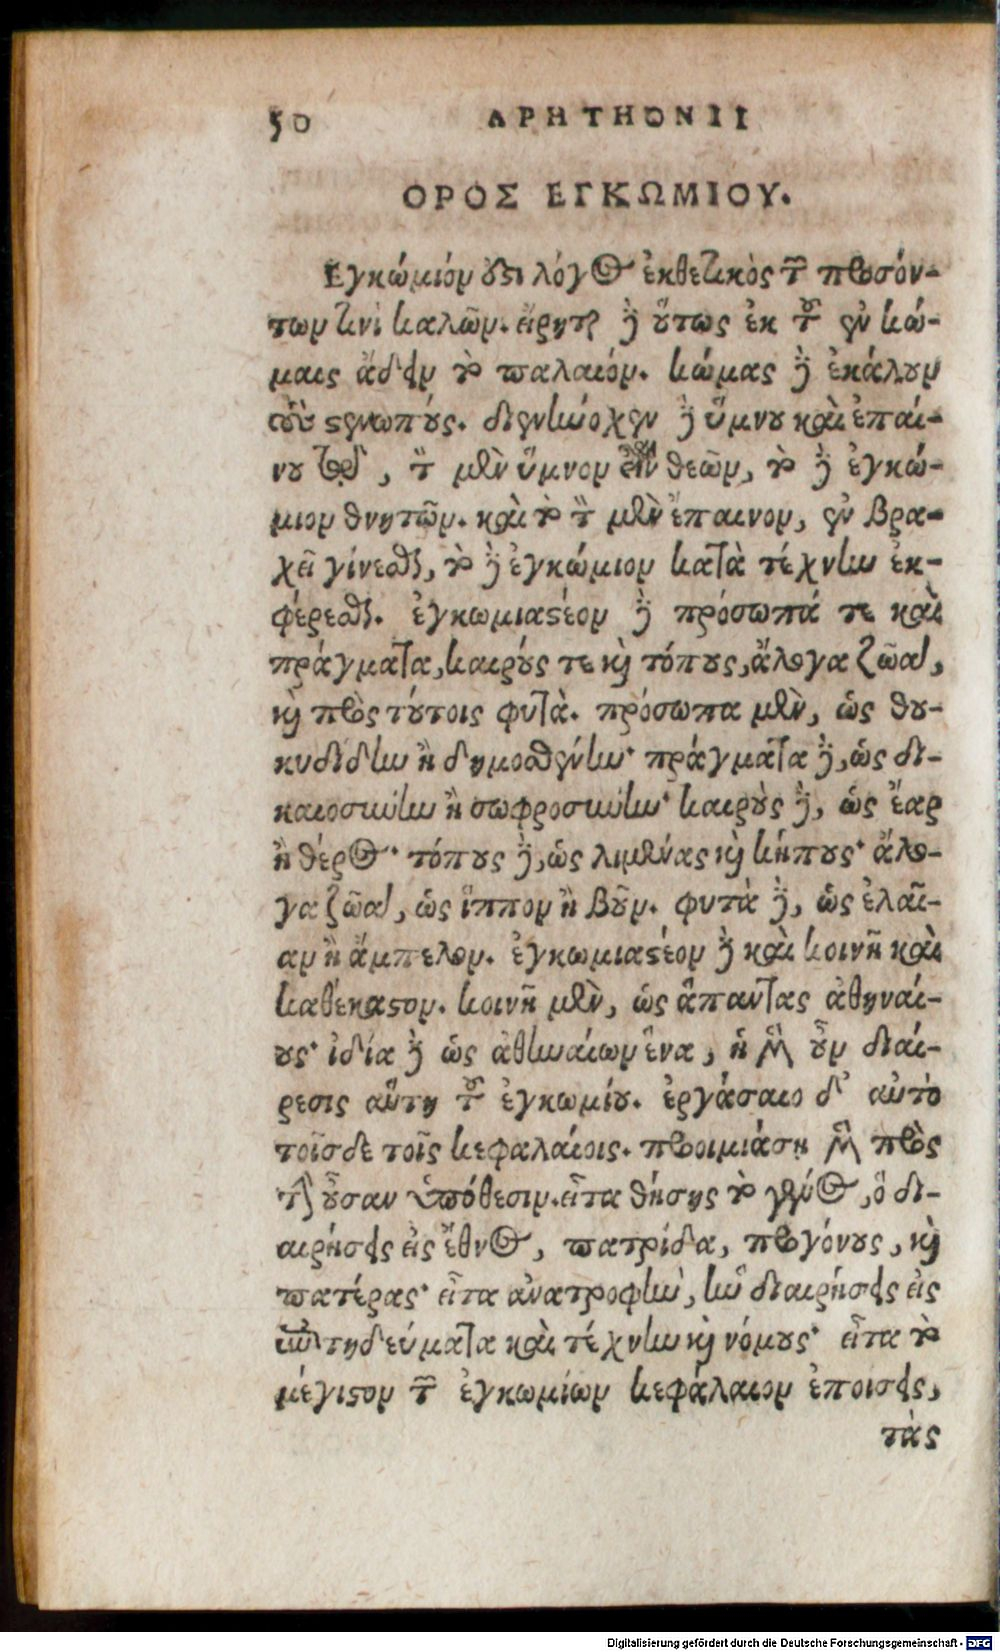 50 APHTHONII
ΟΡΟΣ ΕΓΚΩΜΙΟΥ.
Εγκώμιόν ὅςι λόγος ἐκθετικὸς τῶν προσόν-
των τινὶ καλῶν. εἴρηται δὲ οὕτως ἐκ τοῦ ἐν κώ-
μαις ᾄδειν τὸ παλαιόν. κώμας δὲ ἐκάλουν
τοὺς ςενωπούς. διενήνοχεν δὲ ὕμνου καὶ ἐπαί-
νου τῷ, τὸν μὲν ὕμνον εἶναι θεῶν, τὸ δὲ ἐγκώ-
μιον θνητῶν. καὶ τὸ τὸν μὲν ἔπαινον, ἐν βρα-
χεῖ γίνεσθαι, τὸ δὲ ἐγκώμιον κατὰ τέχνην ἐκ-
φέρεσθαι. ἐγκωμιαςέον δὲ πρόσωπά τε καὶ
πράγματα, καιρούς τε καὶ τόπους, ἄλογα ζῶα,
καὶ πρὸς τούτοις φυτὰ. πρόσωπα μὲν, ὡς θου-
κυδίδην ἢ δημοσθένην· πράγματα δὲ, ὡς δι-
καιοσύνην ἢ σωφροσύνην· καιροὺς δὲ, ὡς ἔαρ
ἢ θέρος· τόπους δὲ, ὡς λιμένας καὶ κήπους· ἄλο-
γα ζῶα, ὡς ἵππον ἢ βοῦν. φυτὰ δὲ, ὡς ἐλαῖ-
αν ἢ ἄμπελον. ἐγκωμιαςέον δὲ καὶ κοινῆ καὶ
καθέκαςον. κοινῆ μὲν, ὡς ἅπαντας ἀθηναί-
ους· ἰδία δὲ ὡς ἀθηναίων ἕνα, ἡ μὲν οὖν διαί-
ρεσις αὕτη τοῦ ἐγκωμίου. ἐργάσαιο δ' αὐτὸ
τοῖσδε τοῖς κεφαλαίοις. προιμιάση μὲν πρὸς
τὴν οὖσαν ὑπόθεσιν. εἶτα θήσης τὸ γένος, ὃ δι-
αιρήσεις εἰς ἔθνος, πατρίδα, προγόνους, καὶ
πατέρας· εἶτα ἀνατροφὴν, ἣν διαιρήσεις εἰς
ἐπιτηδεύματα καὶ τέχνην καὶ νόμους· εἶτα τὸ
μέγιςον τῶν ἐγκωμίων κεφάλαιον ἐποισεις,
τὰς
Digitalisierung gefördert durch die Deutsche Forschungsgemeinschaft - DFG